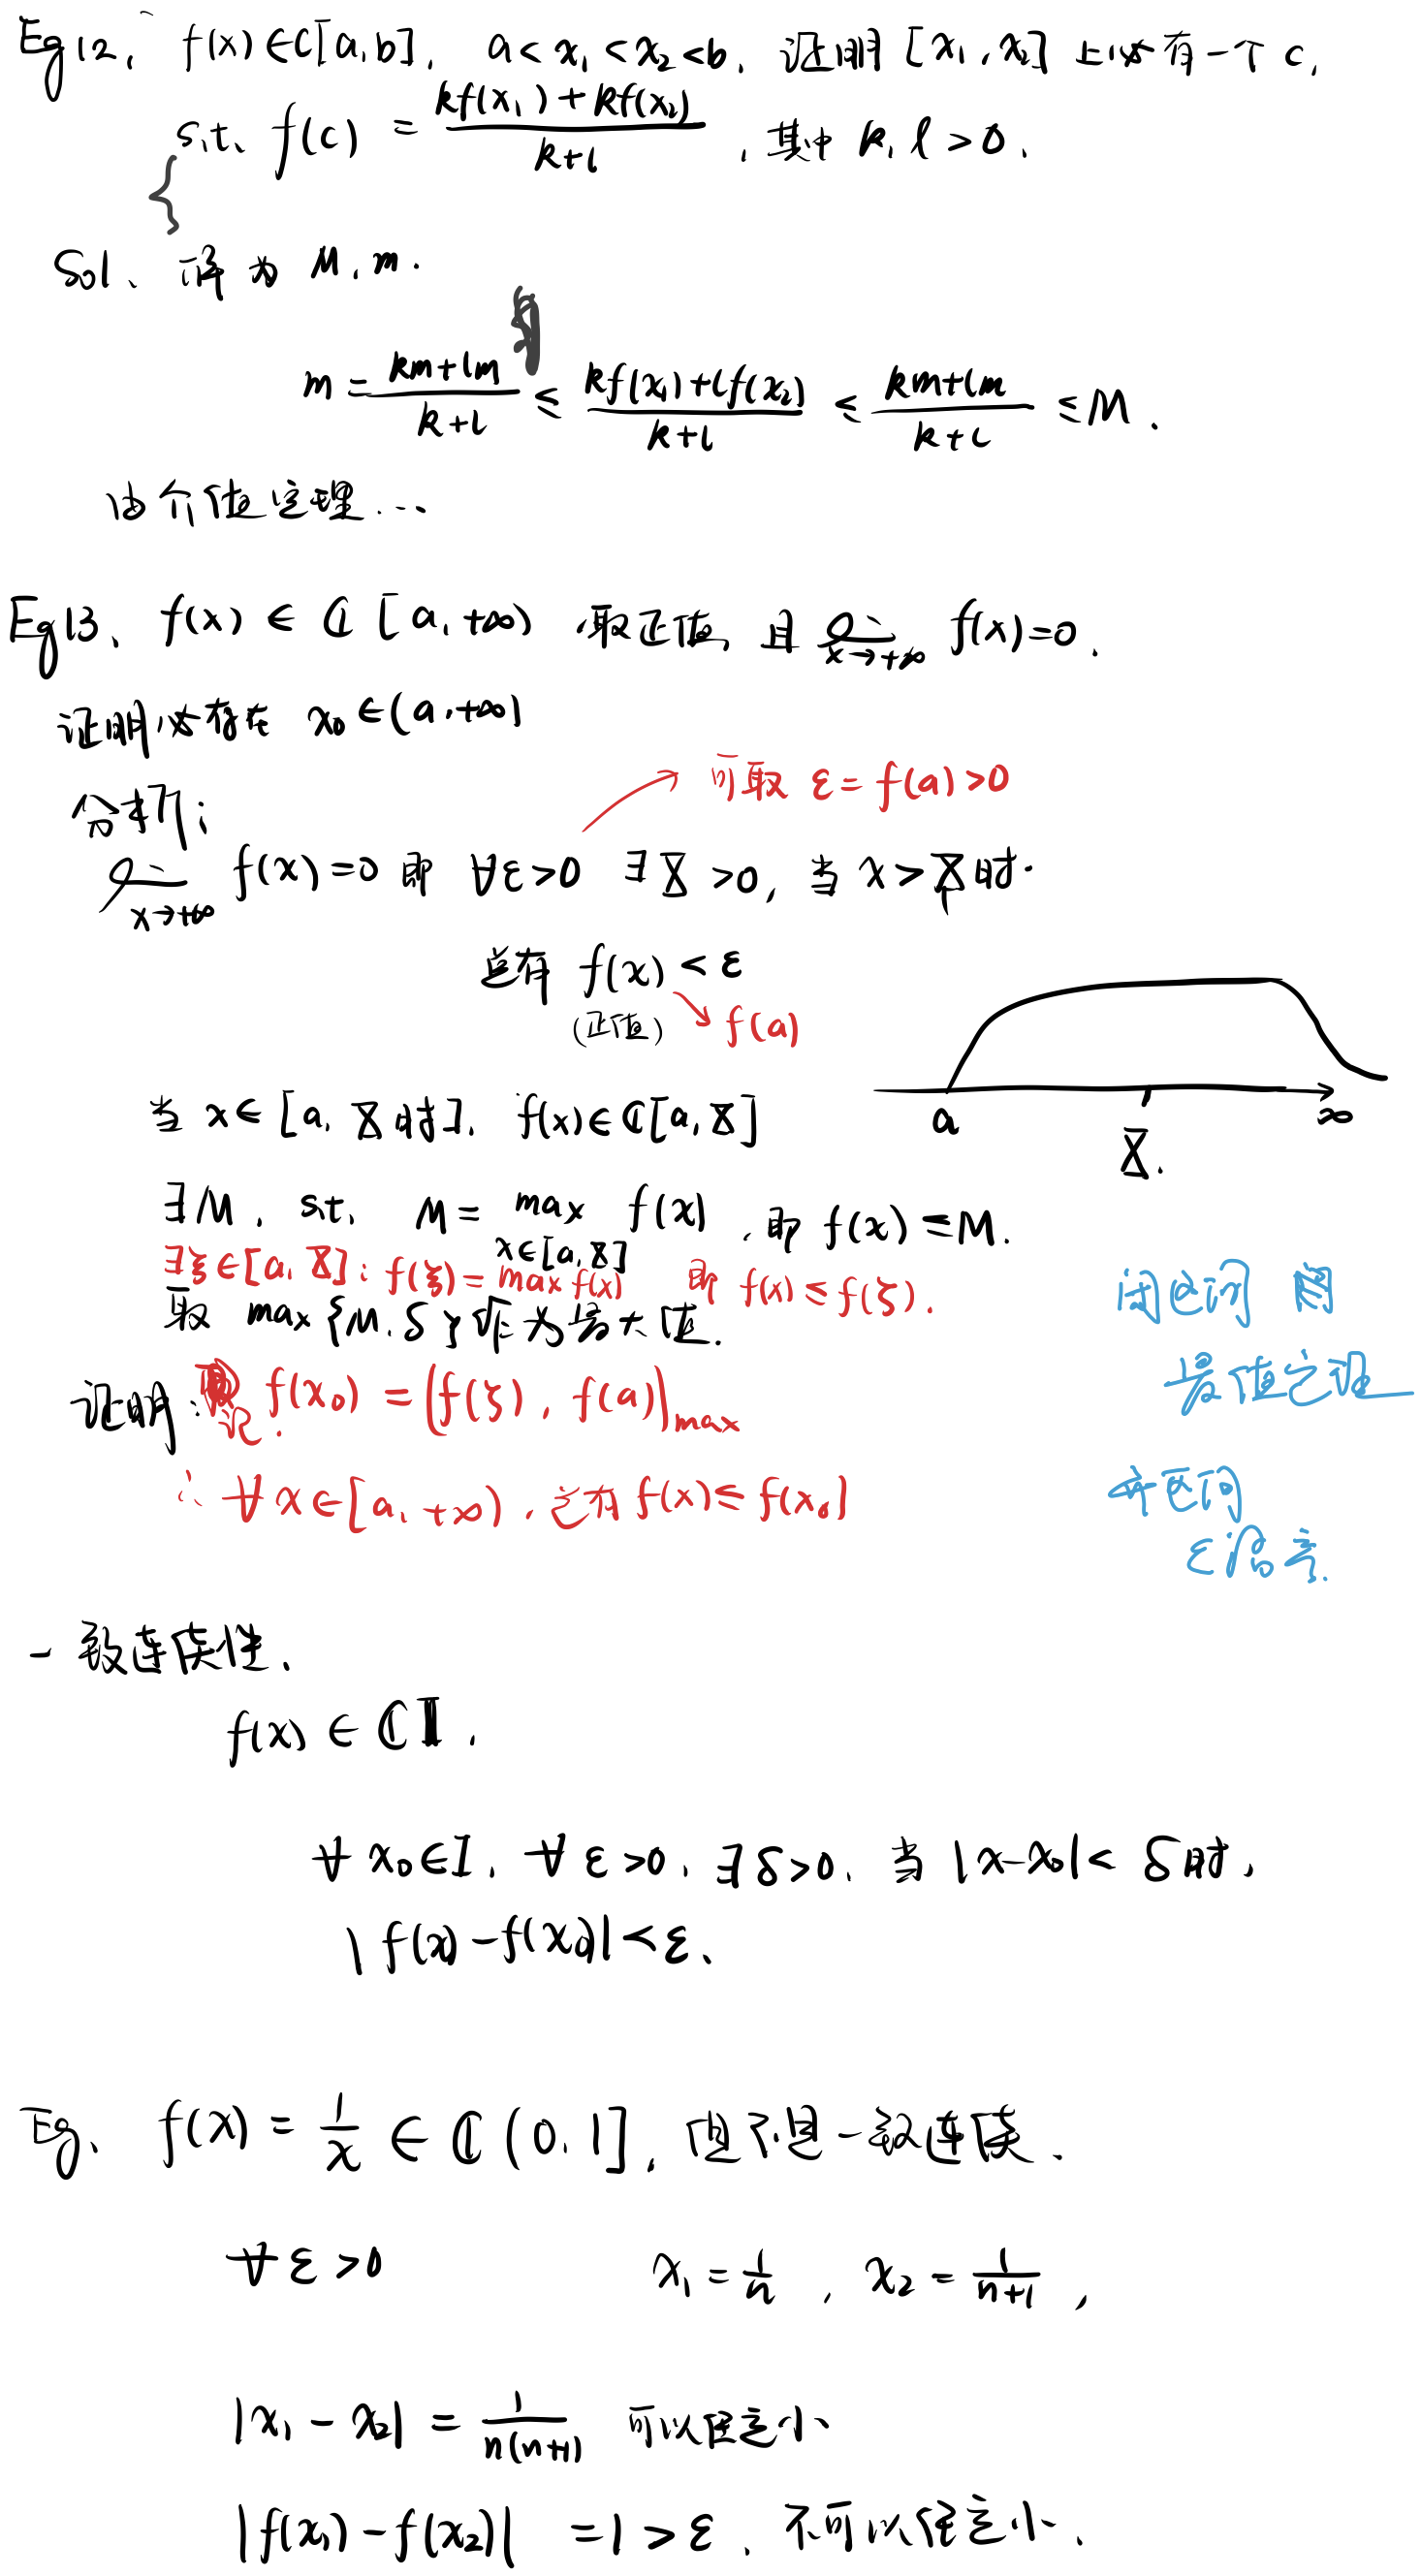 Eg12, f(x)∈C[a,b], a<x₁<x₂<b, 证明[x₁,x₂]上必有一个c,
s.t. f(c) = (kf(x₁)+kf(x₂))/(k+l), 其中 k,l>0.
Sol、 译为 M,m.
m = (km+lm)/(k+l) ≤ (kf(x₁)+lf(x₂))/(k+l) ≤ (km+lm)/(k+l) ≤ M.
由介值定理...
Eg13、 f(x)∈ℂ[a,+∞) 取正值, 且 x→+∞ f(x)=0.
证明必存在 x₀∈(a,+∞)
可取 ε=f(a)>0
分析:
x→+∞ f(x)=0 即 ∀ε>0 ∃X>0, 当x>X时.
总有 f(x)<ε
(正值) f(a)
a X. ∞
当 x∈[a,X时], f(x)∈ℂ[a,X]
∃M, s.t. M= max f(x), 即 f(x)≤M.
x∈[a,X]
∃ξ∈[a,X]: f(ξ)=max f(x) 即 f(x)≤f(ξ).
取 max{M,δ}作为最大值.
闭区间 用
最值定理
证明: 记. f(x₀)=(f(ξ), f(a))max
∴ ∀x∈[a,+∞), 总有f(x)≤f(x₀)
开区间
ε语言.
一致连续性.
f(x)∈ℂI.
∀x₀∈I, ∀ε>0, ∃δ>0, 当|x-x₀|<δ时,
|f(x)-f(x₀)|<ε、
Eg、 f(x)=1/x∈ℂ(0,1], 但不是一致连续.
∀ε>0 x₁=1/n, x₂=1/(n+1),
|x₁-x₂|=1/(n(n+1)) 可以任意小、
|f(x₁)-f(x₂)| =1>ε, 不可以任意小.